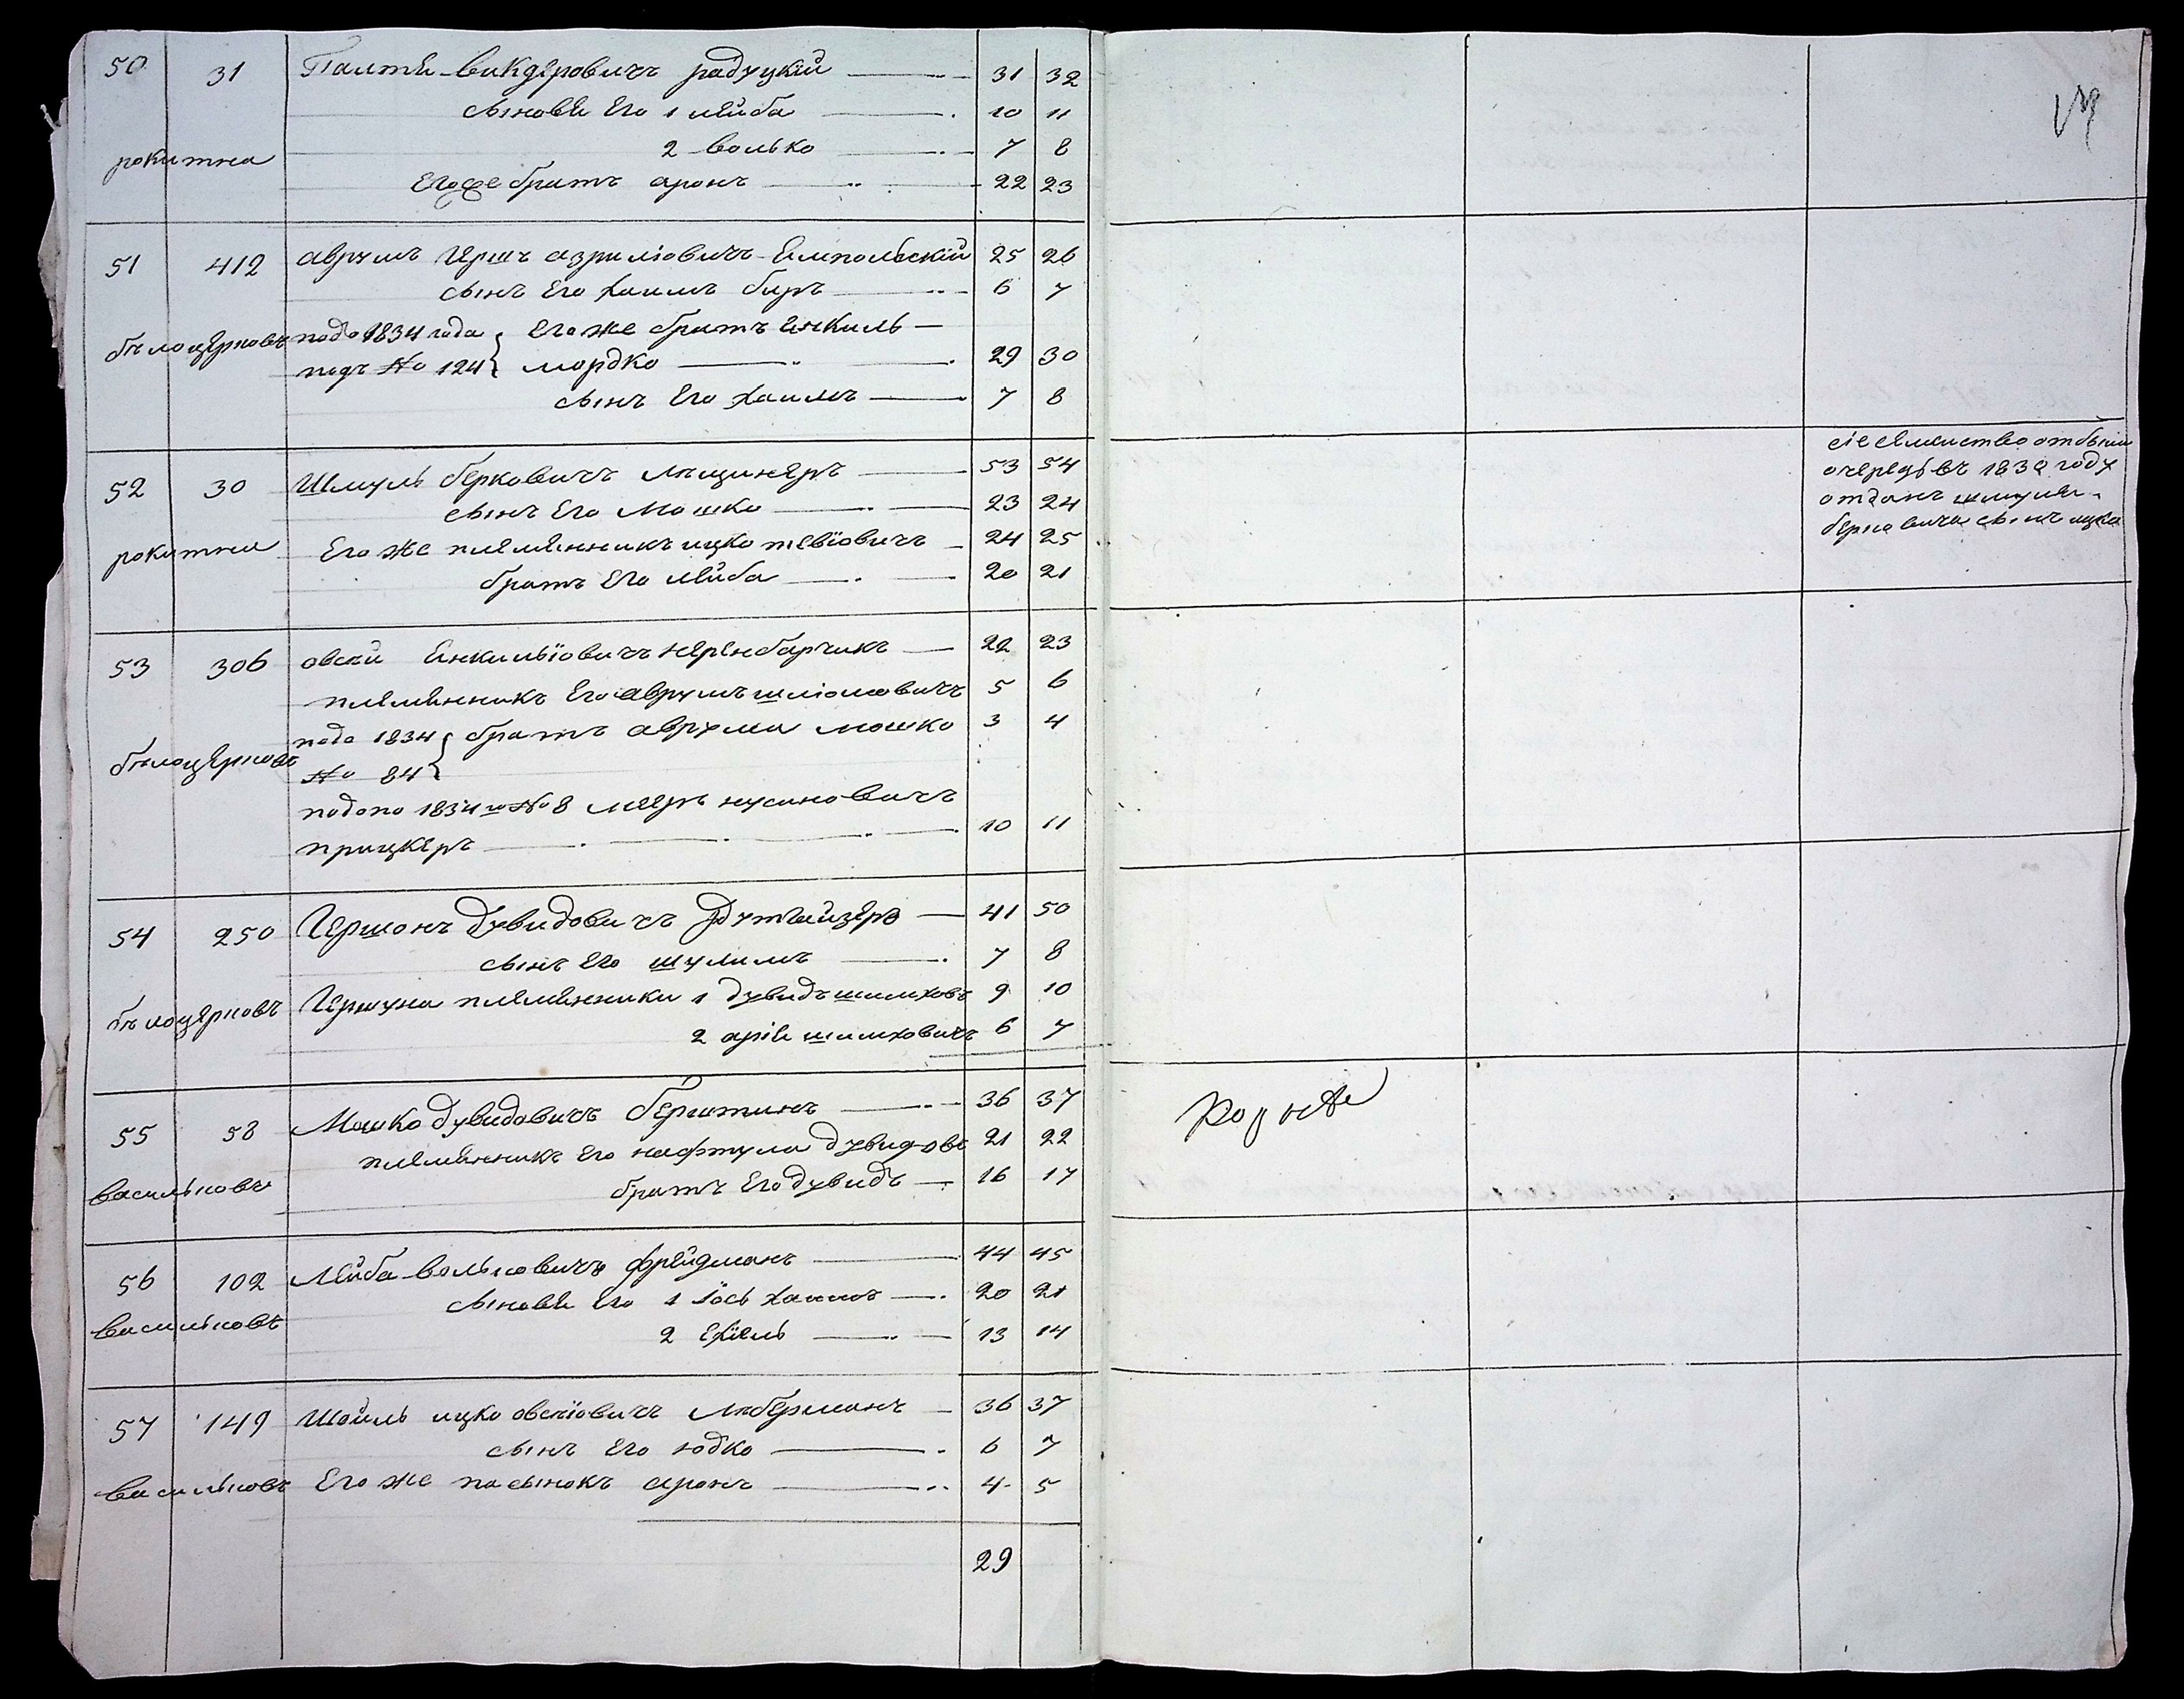 50 31 Палтѣ Викдеровичъ Радуцкій 31 32
сыновѣ Его 1 Лейба 10 11
2 Волько 7 8
рокитна
Егоже братъ аронъ 22 23
51 412 аврумъ Гершъ азриліовичъ Емпольскій 25 26
сынъ Его Хаимъ беръ 6 7
бѣлоцерковъ
подо 1834 года Егоже братъ Енкиль
подъ № 124 мордко 29 30
сынъ Его Хаимъ 7 8
52 30 Шмуль берковичъ Лещинеръ 53 54
сынъ Его Мошко 23 24
рокитна Его же племенникъ ицко тевіовичъ 24 25
братъ Его лейба 20 21
53 306 овсій Енкильіовичъ 22 23
племенникъ Его аврумъ шліомовичъ 5 6
подо 1834 братъ аврума мошко 3 4
бѣлоцерковъ
№ 84
подопо 1834 го № 8 мееръ нусиновичъ
прицкеръ 10 11
54 250 Гершонъ Дувидовичъ 41 50
сынъ Его шулимъ 7 8
бѣлоцерковъ Гершуна племенники 1 дувидъ шимхов 9 10
2 аріе шимховичъ 6 7
55 58 Мошко дувидовичъ берштинъ 36 37
племенникъ Его нафтула Дувидов 21 22
васильковъ
братъ Его дувидъ 16 17
56 102 Лейба Вольковичъ фрейдманъ 44 45
сыновѣ Его 1 Іось Хаимъ 20 21
васильковъ
2 Ехіель 13 14
57 149 Шойль ицко овсіовичъ Либерманъ 36 37
сынъ Его юдко 6 7
васильковъ Его же пасынокъ аронъ 4 5
29
сіе семейство отбыли
очередь въ 183 году
отданъ шмуля
берковича сынъ ицко